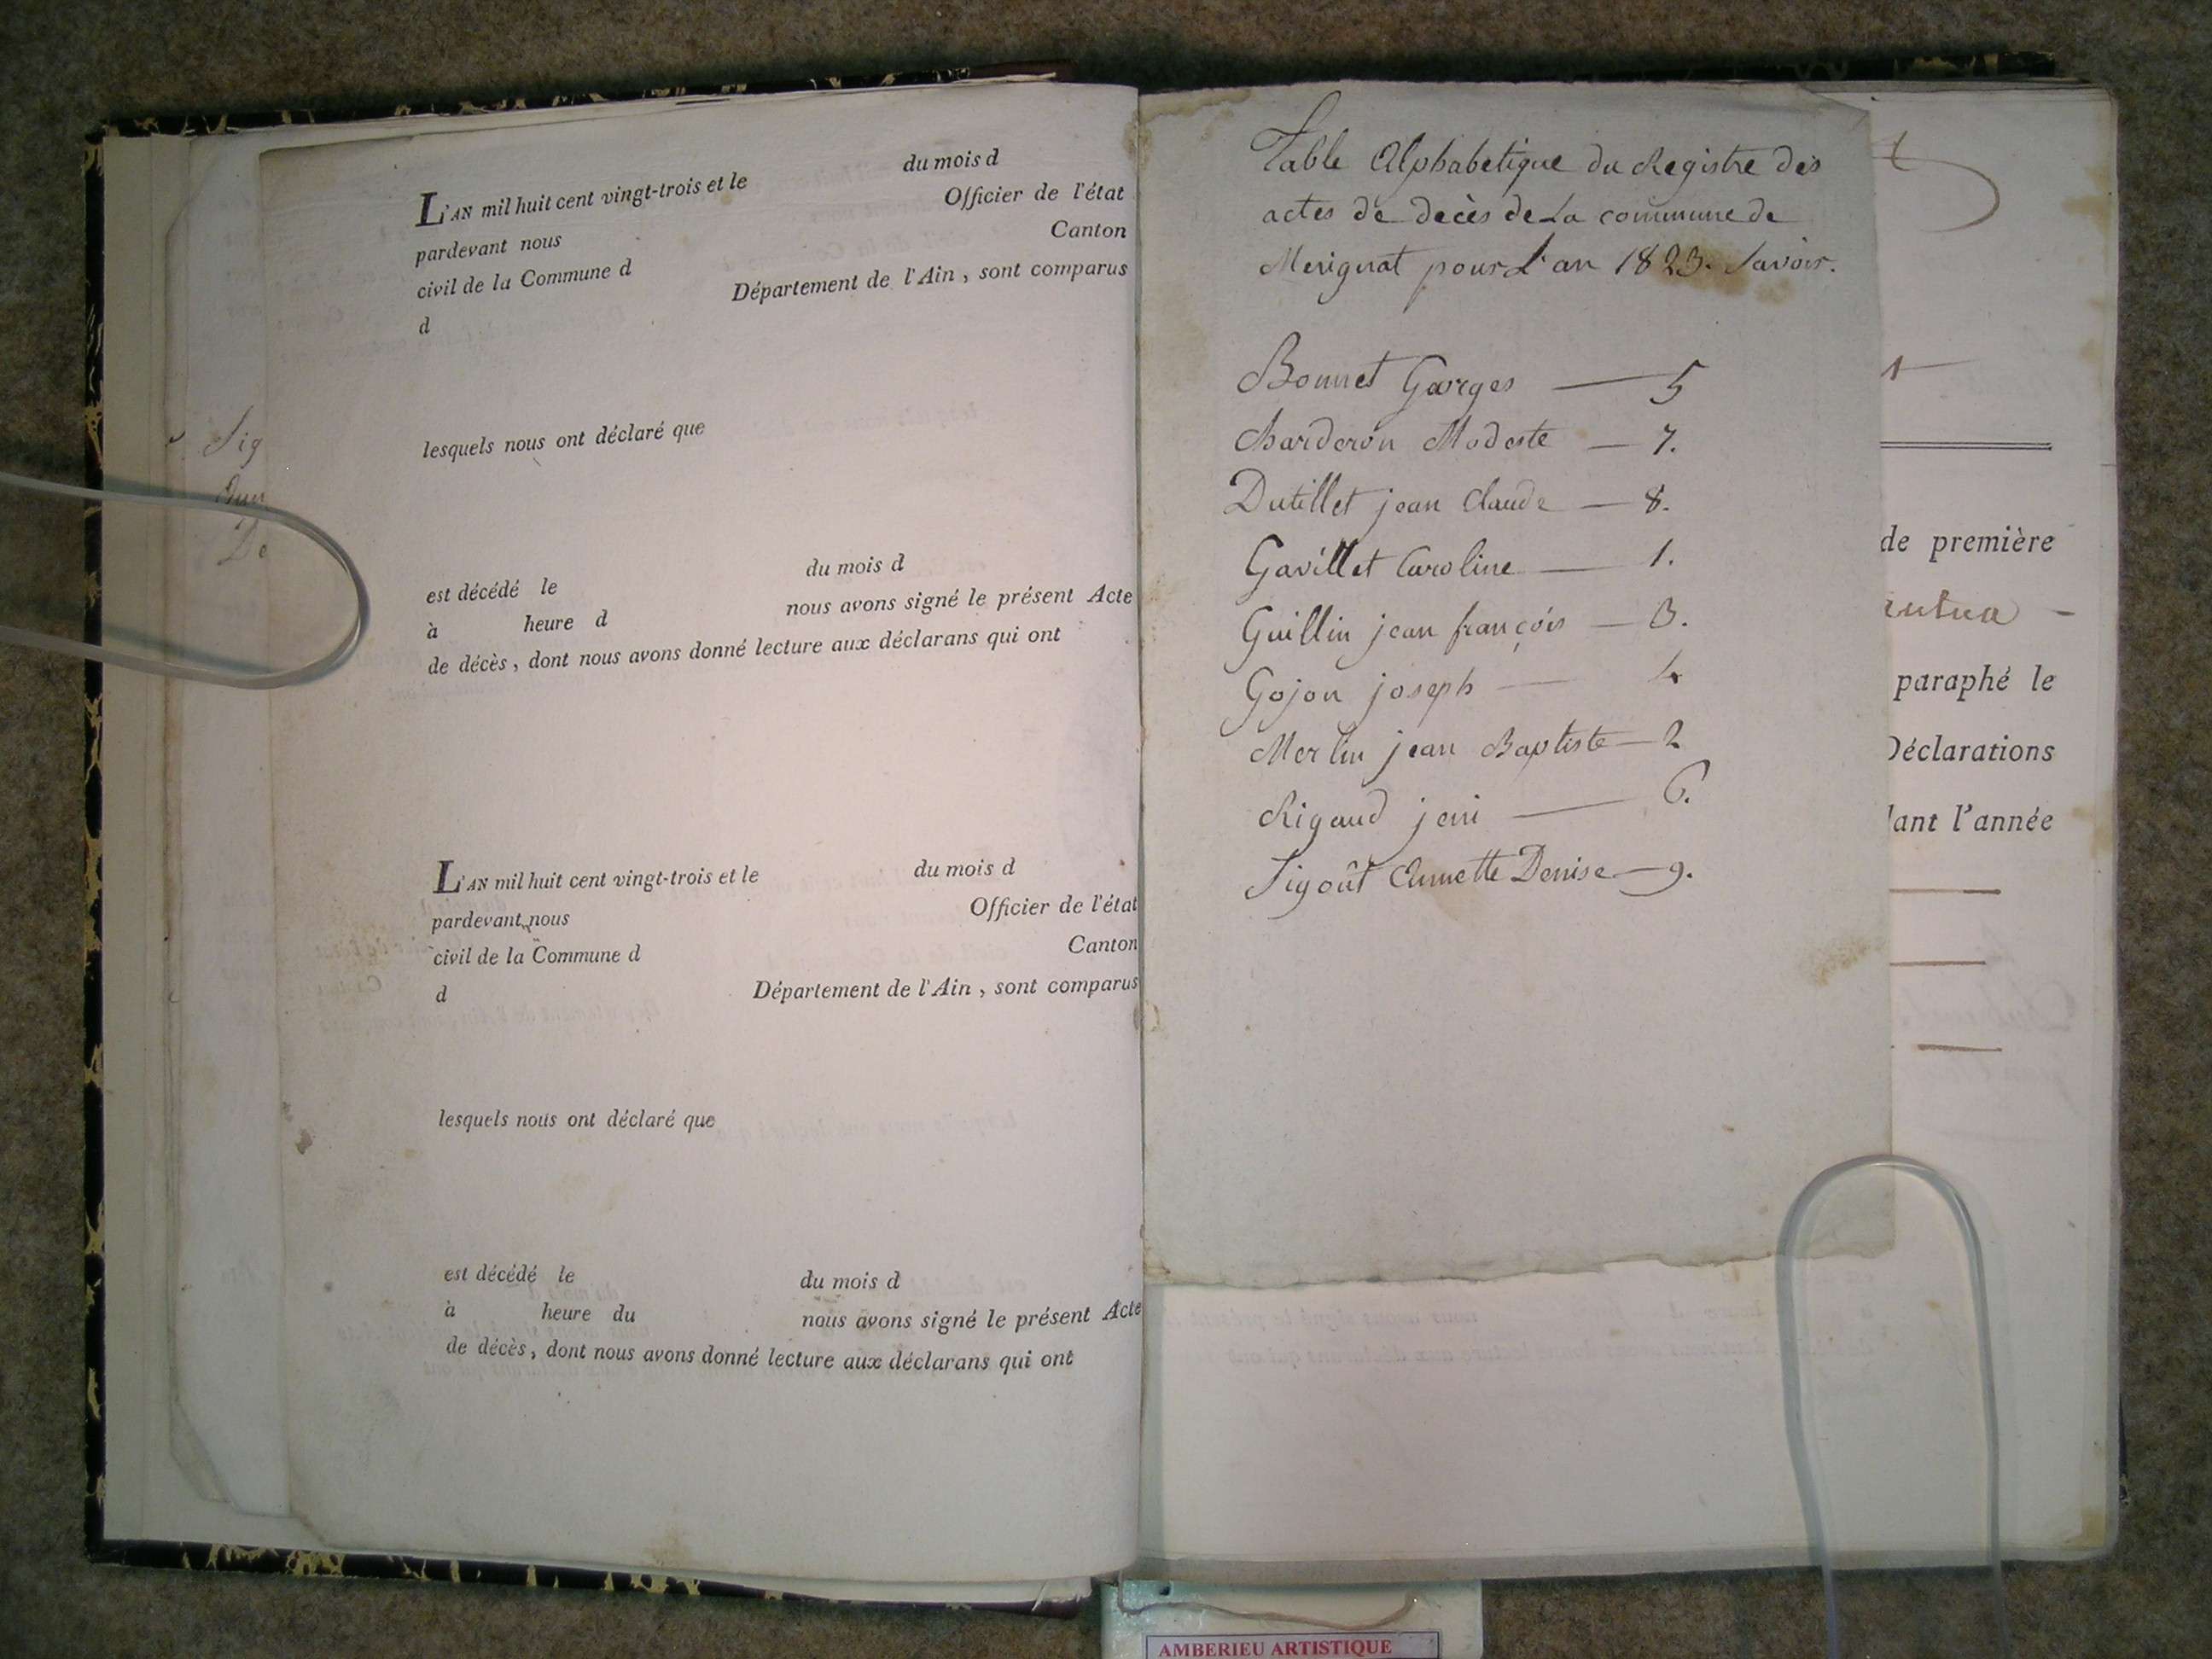 Sig
De
L'AN mil huit cent vingt-trois et le du mois d
pardevant nous Officier de l'état
civil de la Commune d Canton
d Département de l'Ain, sont comparus
lesquels nous ont déclaré que
est décédé le du mois d
à heure d nous avons signé le présent Acte
de décès, dont nous avons donné lecture aux déclarans qui ont
L'AN mil huit cent vingt-trois et le du mois d
pardevant nous Officier de l'état
civil de la Commune d Canton
d Département de l'Ain, sont comparus
lesquels nous ont déclaré que
est décédé le du mois d
à heure du nous avons signé le présent Acte
de décès, dont nous avons donné lecture aux déclarans qui ont
Table Alphabetique du Registre des
actes de decès de La commune de
Merignat pour L'an 1823. Savoir.
Bonnet Georges — 5
Charderon Modeste — 7.
Dutillet jean Claude — 8.
Gavillet Caroline — 1.
Guillin jean françois — 3.
Gojon joseph — 4
Merlin jean Baptiste — 2
Rigaud — 6.
Sigoût Annette Denise — 9.
de première
paraphé le
Déclarations
dant l'année
AMBERIEU ARTISTIQUE